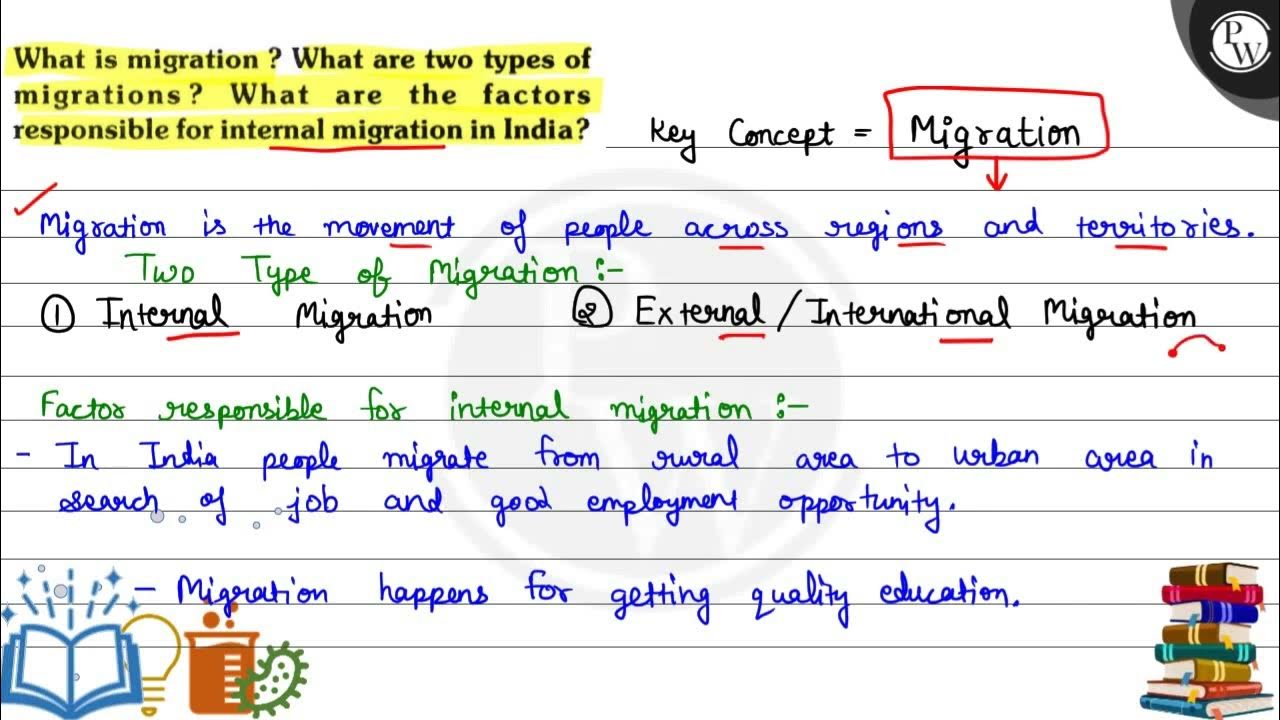 What is migration ? What are two types of
migrations ? What are the factors
responsible for internal migration in India?
PW
Key Concept = Migration
Migration is the movement of people across regions and territories.
Two Type of Migration :-
① Internal Migration ② External / International Migration
Factor responsible for internal migration :-
- In India people migrate from rural area to urban area in
search of job and good employment opportunity.
- Migration happens for getting quality education.